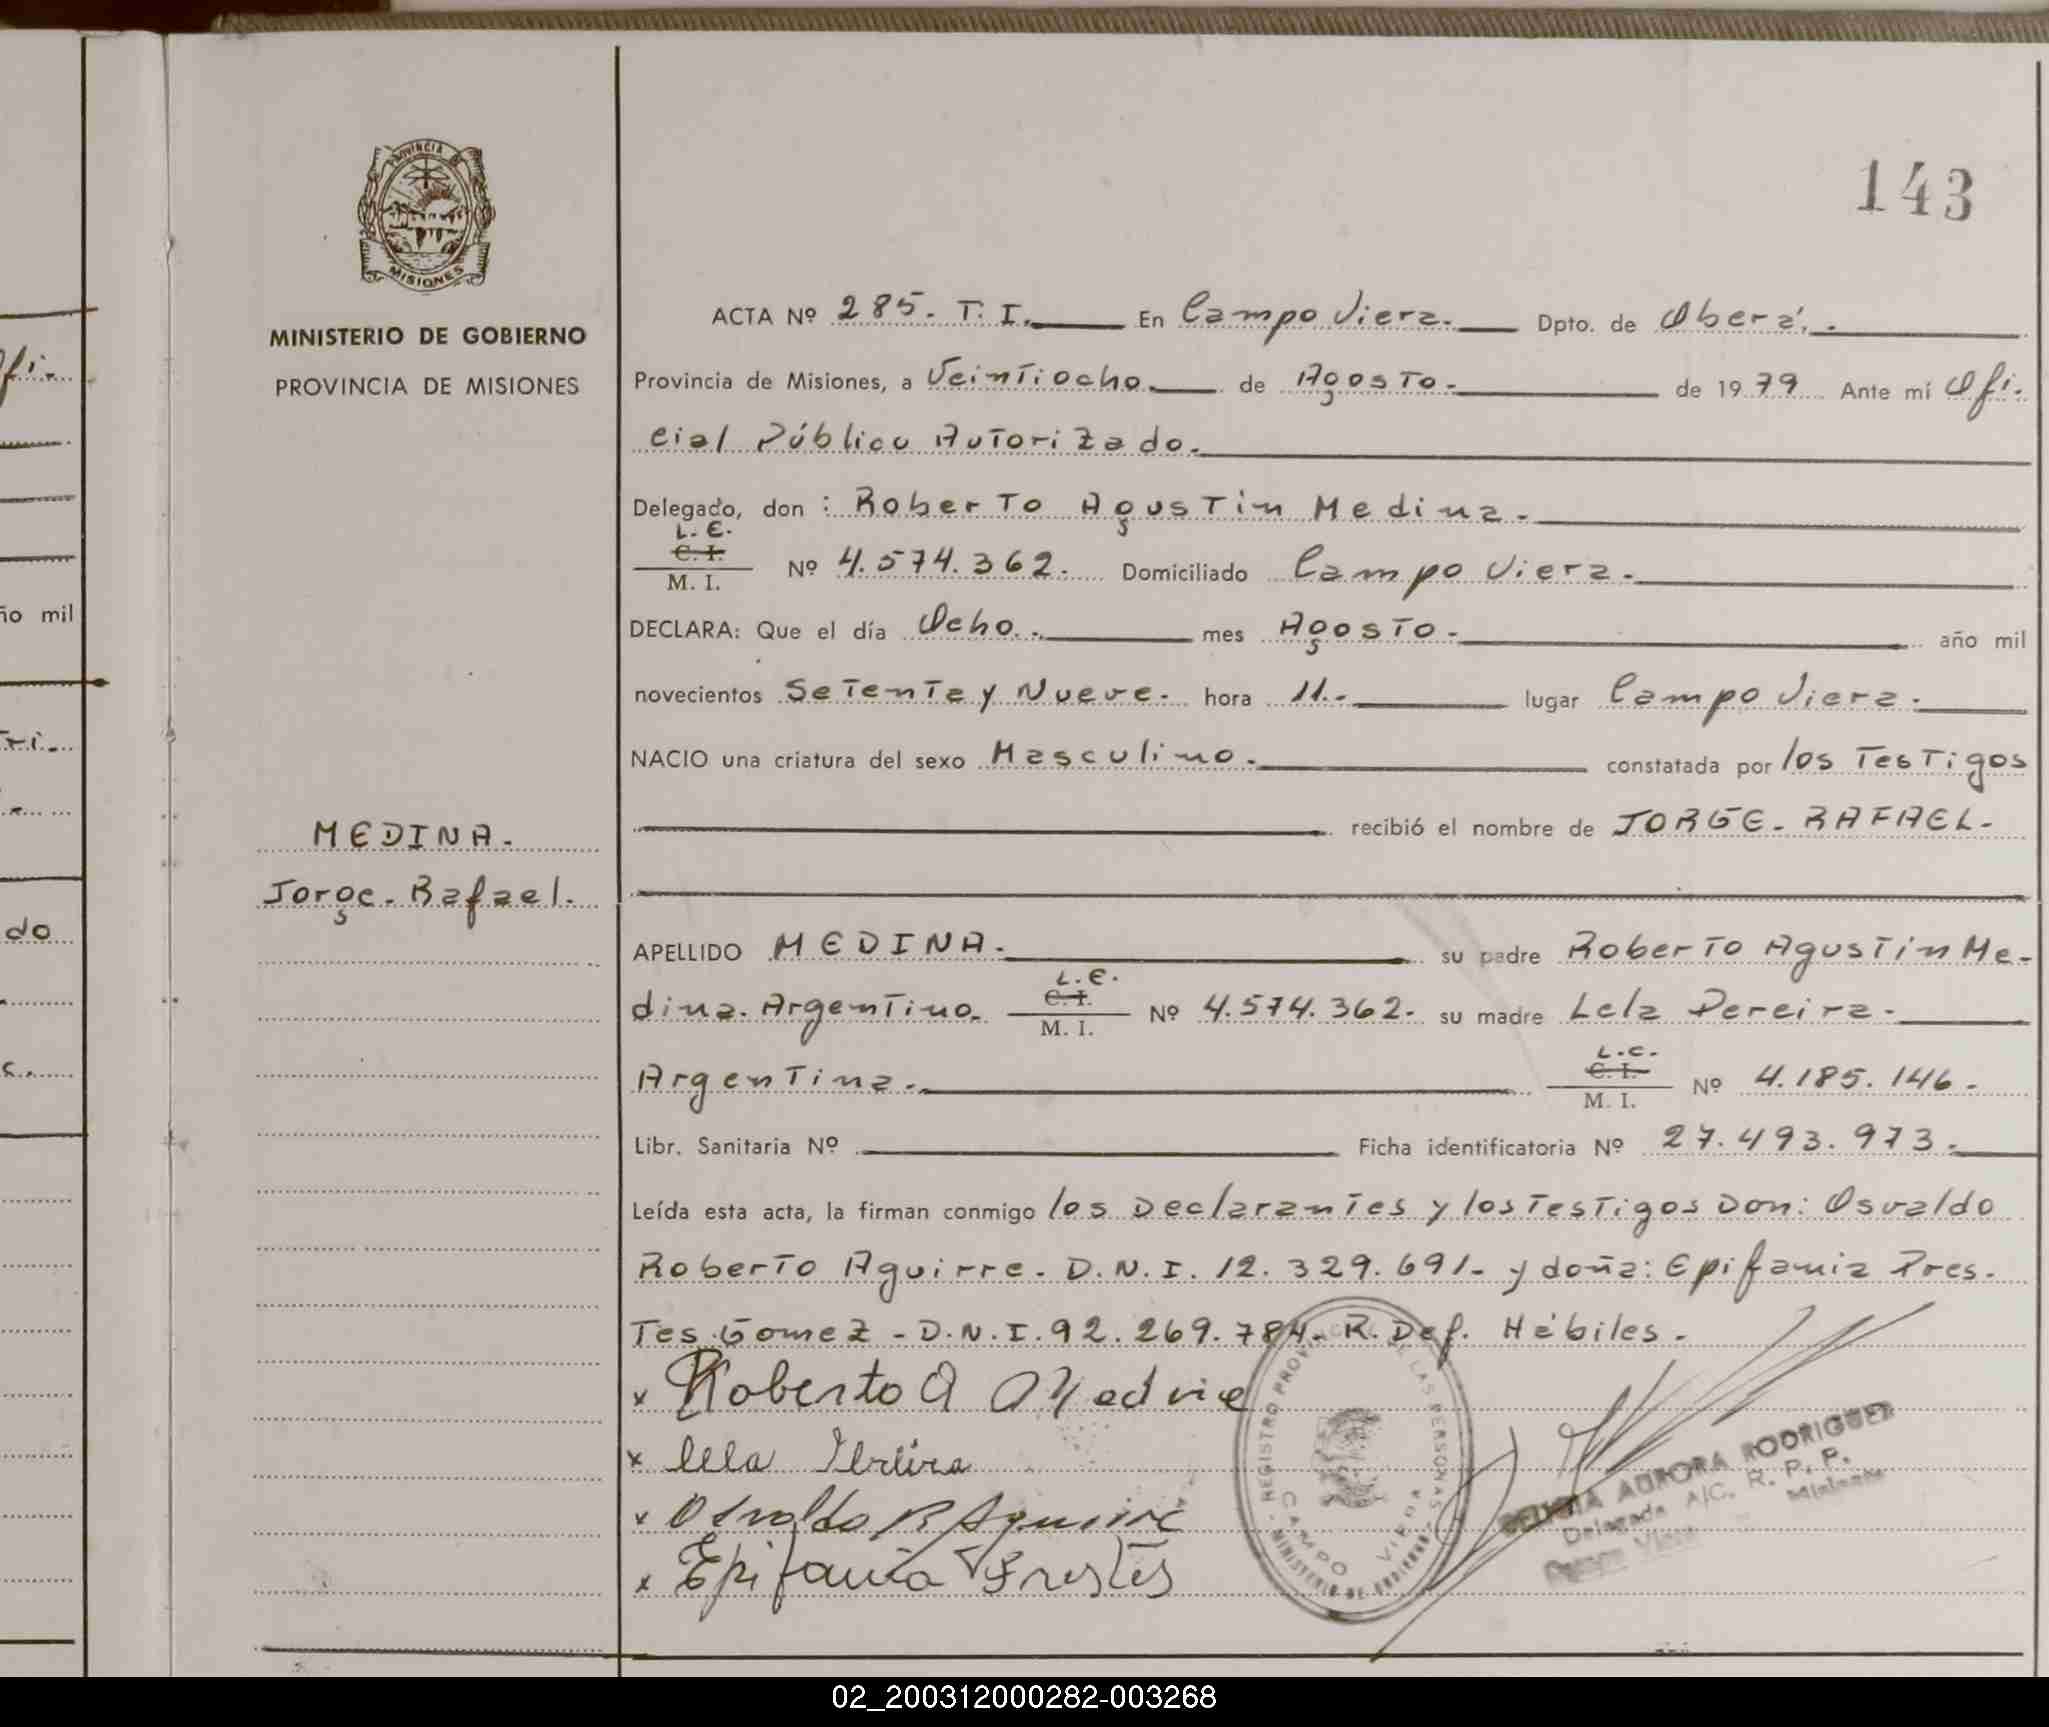 143
PROVINCIA DE
MISIONES
MINISTERIO DE GOBIERNO
PROVINCIA DE MISIONES
MEDINA.
Jorge. Rafael.
ACTA Nº 285. T. I. En Campo Viera. Dpto. de Oberá.
Provincia de Misiones, a Veintiocho. de Agosto. de 1979 Ante mi Ofi.
cial Público Autorizado.
Delegado, don : Roberto Agustin Medina.
L. E.
C. I.
M. I. Nº 4.574.362. Domiciliado Campo Viera.
DECLARA: Que el día Ocho. mes Agosto. año mil
novecientos Setenta y Nueve. hora 11. lugar Campo Viera.
NACIO una criatura del sexo Masculino. constatada por los Testigos
recibió el nombre de JORGE. RAFAEL.
APELLIDO MEDINA. su padre Roberto Agustin Me-
L. E.
C. I.
dina. Argentino. M. I. Nº 4.574.362. su madre Lela Pereira.
L. C.
C. I.
Argentina. M. I. Nº 4.185.146.
Libr. Sanitaria Nº Ficha identificatoria Nº 27.493.973.
Leída esta acta, la firman conmigo los Declarantes y los Testigos Don: Osvaldo
Roberto Aguirre. D.N.I. 12.329.691. y doña: Epifania Pres.
Tes. Gomez - D.N.I. 92.269.784. R. Def. Hábiles.
x Roberto A Medina
x lela Pereira
x Osvaldo R Aguirre
x Epifania Prestes
REGISTRO PROVINCIAL DE LAS PERSONAS
CAMPO VIERA
MINISTERIO DE GOBIERNO
AURORA RODRIGUEZ
Delegada A/C. R. P. P.
Campo Viera Misiones
ofi.
ño mil
Tri.
do
c.
02_200312000282-003268